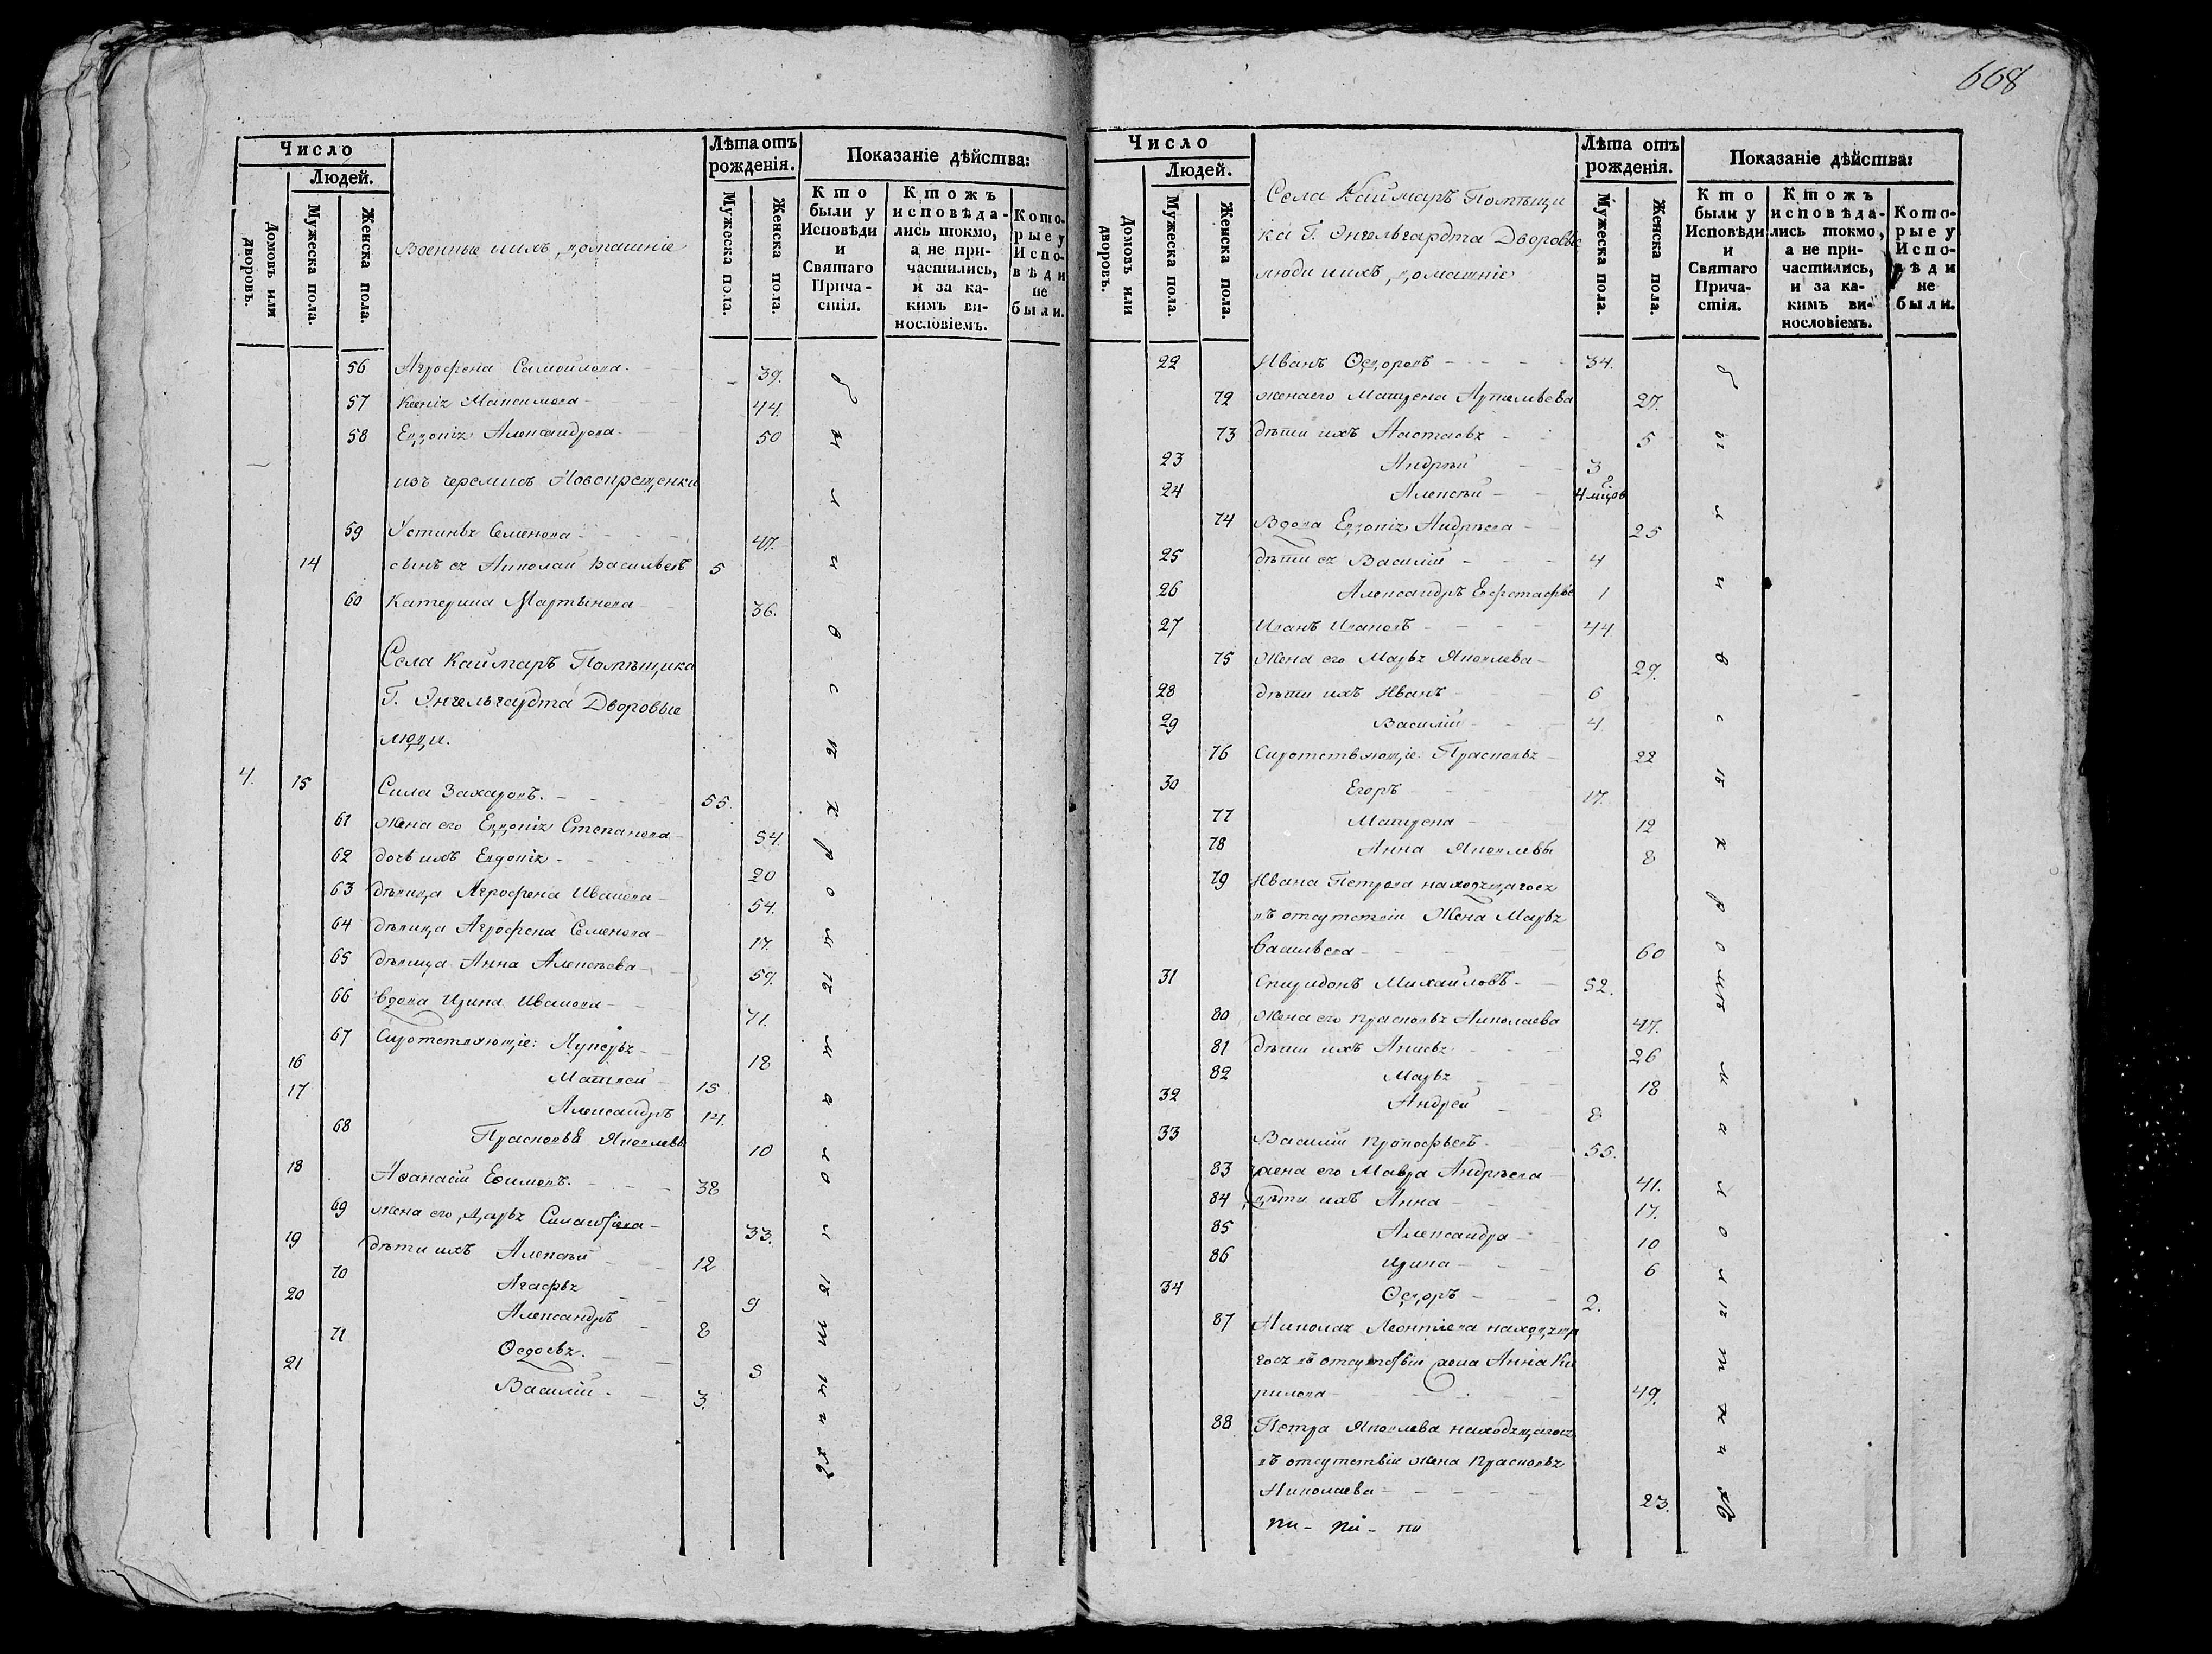 668
Число
Людей.
Домовъ или дворовъ.
Мужеска пола.
Женска пола.
Военные и ихъ домашніе
Лѣта отъ рожденія.
Мужеска пола.
Женска пола.
Показаніе дѣйства:
Кто были у Исповѣди и Святаго Прича-стія.
Ктожъ исповѣда-лись токмо, а не при-частились, и за ка-кимъ ви-нословіемъ.
Кото-рые у Испо-вѣди не были.
56 Агрофена Самоилова 39.
57 Ксенія Максимова 44.
58 Евдокія Александрова 50
изъ черемисъ Новокрещенки
59 Устинья Семенова 47.
14 сынъ ея Николай Васильевъ 5
60 Катерина Мартынова 36.
Села Каймаръ Помѣщика
Г. Энгельгардта Дворовые
люди.
4. 15 Сила Захаровъ. 55.
61 жена его Евдокія Степанова 54.
62 дочь ихъ Евдокія 20
63 дѣвица Агрофена Иванова 54.
64 дѣвица Агрофена Семенова 17.
65 дѣвица Анна Алексѣева 59.
66 вдова Ирина Иванова 71.
67 Сиротствующіе: Лукерья 18
16 Матвеи 15
17 Александръ 14.
68 Прасковья Яковлевы 10
18 Аѳанасій Еѳимовъ. 38
69 жена его Дарья 33.
19 дѣти ихъ Алексѣй 12
70 Агафья 9
20 Александръ 8
71 Ѳедосья. 5
21 Василій. 3.
были и въ скромѣ малолѣтныхъ
Число
Людей.
Домовъ или дворовъ.
Мужеска пола.
Женска пола.
Села Каймаръ Помѣщи
ка Г. Энгельгардта Дворовые
люди и ихъ домашніе
Лѣта отъ рожденія.
Мужеска пола.
Женска пола.
Показаніе дѣйства:
Кто были у Исповѣди и Святаго Прича-стія.
Ктожъ исповѣда-лись токмо, а не при-частились, и за ка-кимъ ви-нословіемъ.
Кото-рые у Испо-вѣди не были.
22 Иванъ Ѳедоровъ 34.
72 жена его Матрена Артемьева 27.
73 дѣти ихъ Настасья 5
23 Андрѣй 3
24 Алексѣй 4 мцов
74 Вдова Евдокія Андрѣева 25
25 дѣти ея Василій 4
26 Александръ 1
27 Иванъ Ивановъ 44
75 Жена его Марья Яковлева 29.
28 дѣти ихъ Иванъ 6
29 Василій 4
76 Сиротствующіе: Прасковья 22
30 Егоръ 17.
77 Матрена 12
78 Анна Яковлевы 8
79 Ивана Петрова находящагося
въ отсутствіи Жена Марья
Васильева 60
31 Спиридонъ Михайловъ 52.
80 Жена его Прасковья Николаева 47.
81 дѣти ихъ Анисья 26
82 Марья 18
32 Андрей 8
33 Василій Прокофьевъ 55.
83 жена его Мавра Андрѣева 41.
84 дѣти ихъ Анна 17.
85 Александра 10
86 Ирина 6
34 Ѳедоръ 2.
87 Николая Леонтіева находяща
гося въ отсутствіи жена Анна Ки
рилова 49.
88 Петра Яковлева находящагося
въ отсутствіи жена Прасковья
Николаева 23.